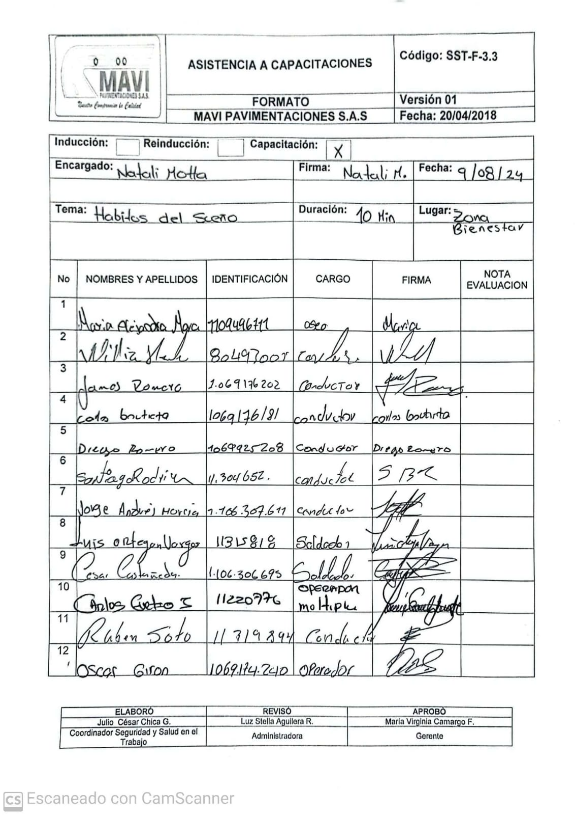 0 00
MAVI
PAVIMENTACIONES S.A.S
Nuestro Compromiso la Calidad
ASISTENCIA A CAPACITACIONES
Código: SST-F-3.3
FORMATO
Versión 01
MAVI PAVIMENTACIONES S.A.S
Fecha: 20/04/2018
Inducción: Reinducción: Capacitación: X
Encargado: Natali Motta Firma: Natali M. Fecha: 9/08/24
Tema: Habitos del Sueño Duración: 10 Min Lugar: Zona
Bienestar
No NOMBRES Y APELLIDOS IDENTIFICACIÓN CARGO FIRMA NOTA EVALUACION
1 Maria Alejandra 1109496711 aseo Maria
2 80497007
3 James Romero 1.069176202 Conductor
4 carlos bautista 1069176181 conductor carlos bautista
5 Diego Romero 1069925208 Conductor Diego Romero
6 Santiago 11.304652. conductor S B R
7 Jorge Andres 1.106.307.611 conductor
8 Luis Ortegon Vargas 11315818 Soldador
9 Cesar Castañeda 1.106.306.695 Soldador
10 Carlos 11220776 OPERADOR
multiple
11 Ruben Soto 11319894
12 Oscar Giron 1069.174.240 operador
ELABORÓ REVISÓ APROBÓ
Julio César Chica G. Luz Stella Aguilera R. Maria Virginia Camargo F.
Coordinador Seguridad y Salud en el
Trabajo Administradora Gerente
CS Escaneado con CamScanner